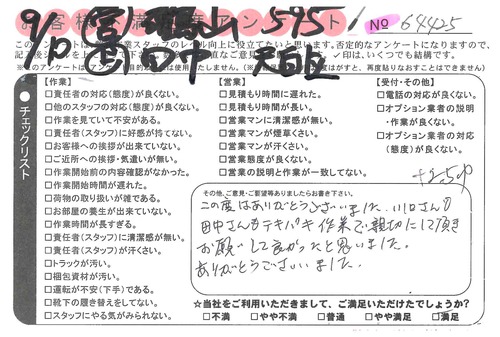 お客様満足度アンケート
9/10
(営)
山
595
NO 64425
田中
このアンケートは、作業スタッフのレベル向上に役立てたいと思います。否定的なアンケートになりますので、
✓印は、いくつでも結構です。
【作業】
□責任者の対応(態度)が良くない。
□他のスタッフの対応(態度)が良くない。
□作業を見ていて不安がある。
□責任者(スタッフ)に好感が持てない。
□お客様への挨拶が出来ていない。
□ご近所への挨拶・気遣いが無い。
□作業開始前の内容確認がなかった。
□作業開始時間が遅れた。
□荷物の取り扱いが雑である。
□お部屋の養生が出来ていない。
□作業時間が長すぎる。
□責任者(スタッフ)に清潔感が無い。
□責任者(スタッフ)が汗くさい。
□トラックが汚い。
□梱包資材が汚い。
□運転が不安(下手)である。
□靴下の履き替えをしてない。
□スタッフにやる気がみられない。
【営業】
□見積もり時間に遅れた。
□見積もり時間が長い。
□営業マンに清潔感が無い。
□営業マンが煙草くさい。
□営業マンが汗くさい。
□営業態度が良くない。
□営業の説明と作業が一致してない。
【受付・その他】
□電話の対応が良くない。
□オプション業者の説明
・作業が良くない。
□オプション業者の対応
(態度)が良くない。
チェックリスト
その他、ご意見・ご要望等ありましたらお書き下さい。
この度はありがとうございました。川口さんも
田中さんもテキパキ作業で親切にして頂き
お願いして良かったと思いました。
ありがとうございました。
☆当社をご利用いただきまして、ご満足いただけたでしょうか?
□不満 □やや不満 □普通 □やや満足 □満足